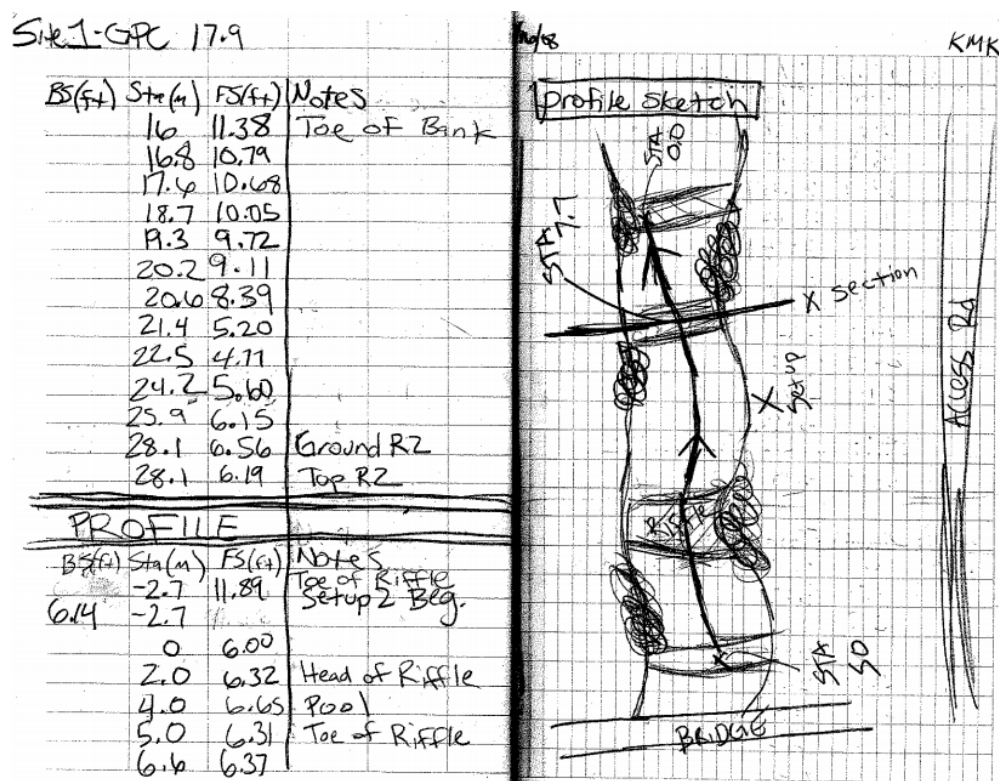 Site 1-GPC 17.9
BS(ft) Sta(m) FS(ft) Notes
16 11.38 Toe of Bank
16.8 10.79
17.6 10.68
18.7 10.05
19.3 9.72
20.2 9.11
20.6 8.39
21.4 5.20
22.5 4.77
24.2 5.60
25.9 6.15
28.1 6.56 Ground R2
28.1 6.19 Top R2
PROFILE
BS(ft) Sta(m) FS(ft) Notes
-2.7 11.89 Toe of Riffle
6.14 -2.7 Setup 2 Beg.
0 6.00
2.0 6.32 Head of Riffle
4.0 6.65 Pool
5.0 6.31 Toe of Riffle
6.6 6.37
KMK
Profile Sketch
STA 0.0
STA 7.7
X Section
X Setup
Access Rd
RIFFLE
STA 50
BRIDGE